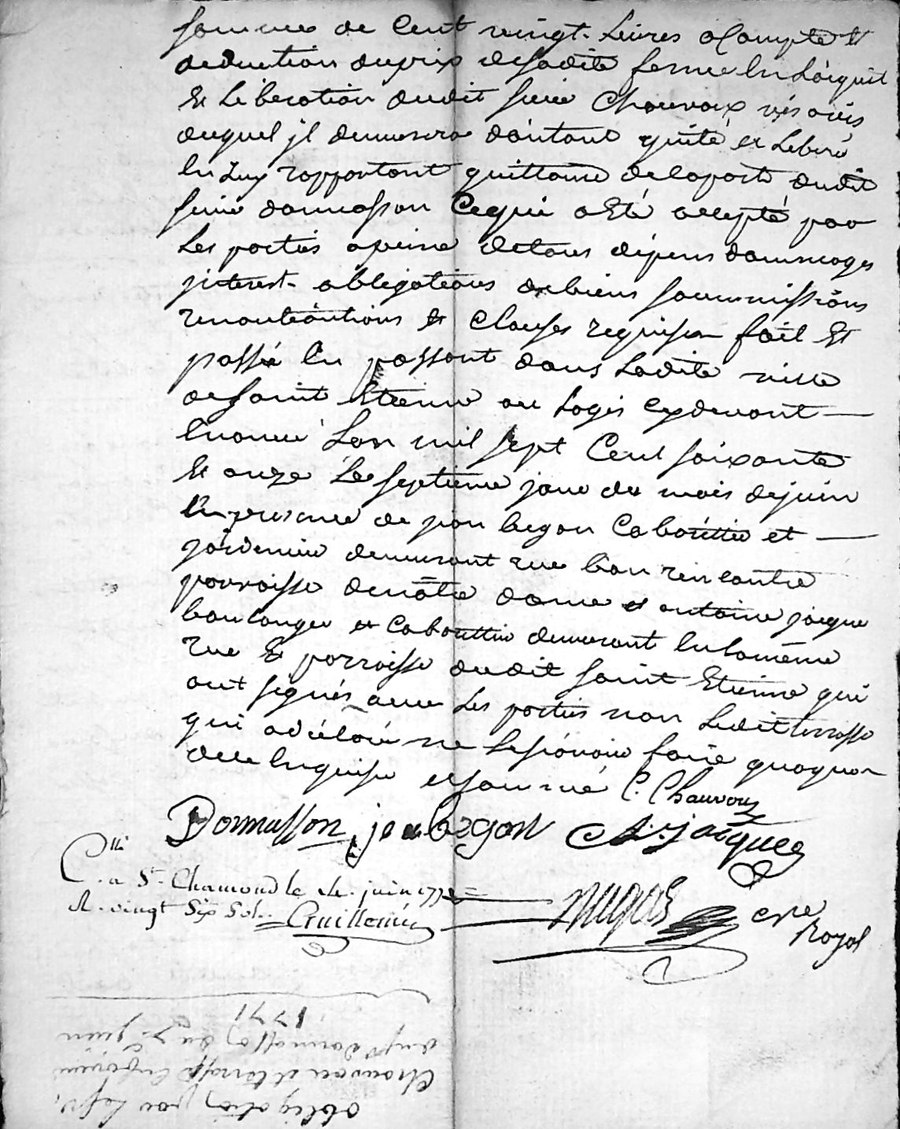 somme de Cent vingt Livres a Compte et
deduction du prix de sadite ferme en L'acquit
et Liberation dudit sieur Chauvaux vis avis
duquel jl demeurera d'autant quité et Liberé
en Luy rapportant quittance de lapart dudit
sieur donmasson Cequi a Eté accepté par
Les parties apeine de tous dépens dommages
jnterest obligations de biens soummissions
renontiations et clauses requises fait et
passé En passant dans Ladite ville
de saint Etienne au Logis cy devant
Enoncé L'an mil sept Cent soixante
et onze Le septieme jour du mois de juin
En presence de jean begon Cabarettier et
jardinier demeurant rue bon rencontre
parroisse de nôtre dame et antoine jacque
boulanger et Cabarettier demeurant en la même
rue et parroisse dudit saint Etienne qui
ont signés avec Les parties non Ledit terrasse
qui a déclaré ne Le sçavoir faire quoyque
de ce Enquis et sommé C. Chauvoux
Donmasson jean begon A. jacques
Clle
a St. Chamond le juin 1771
R. vingt Six Sol. Guillemin
Dugas nre
Royal
obligation pour le sr.
Chauvau et terrasse
au sr donmasson du 7e juin
1771